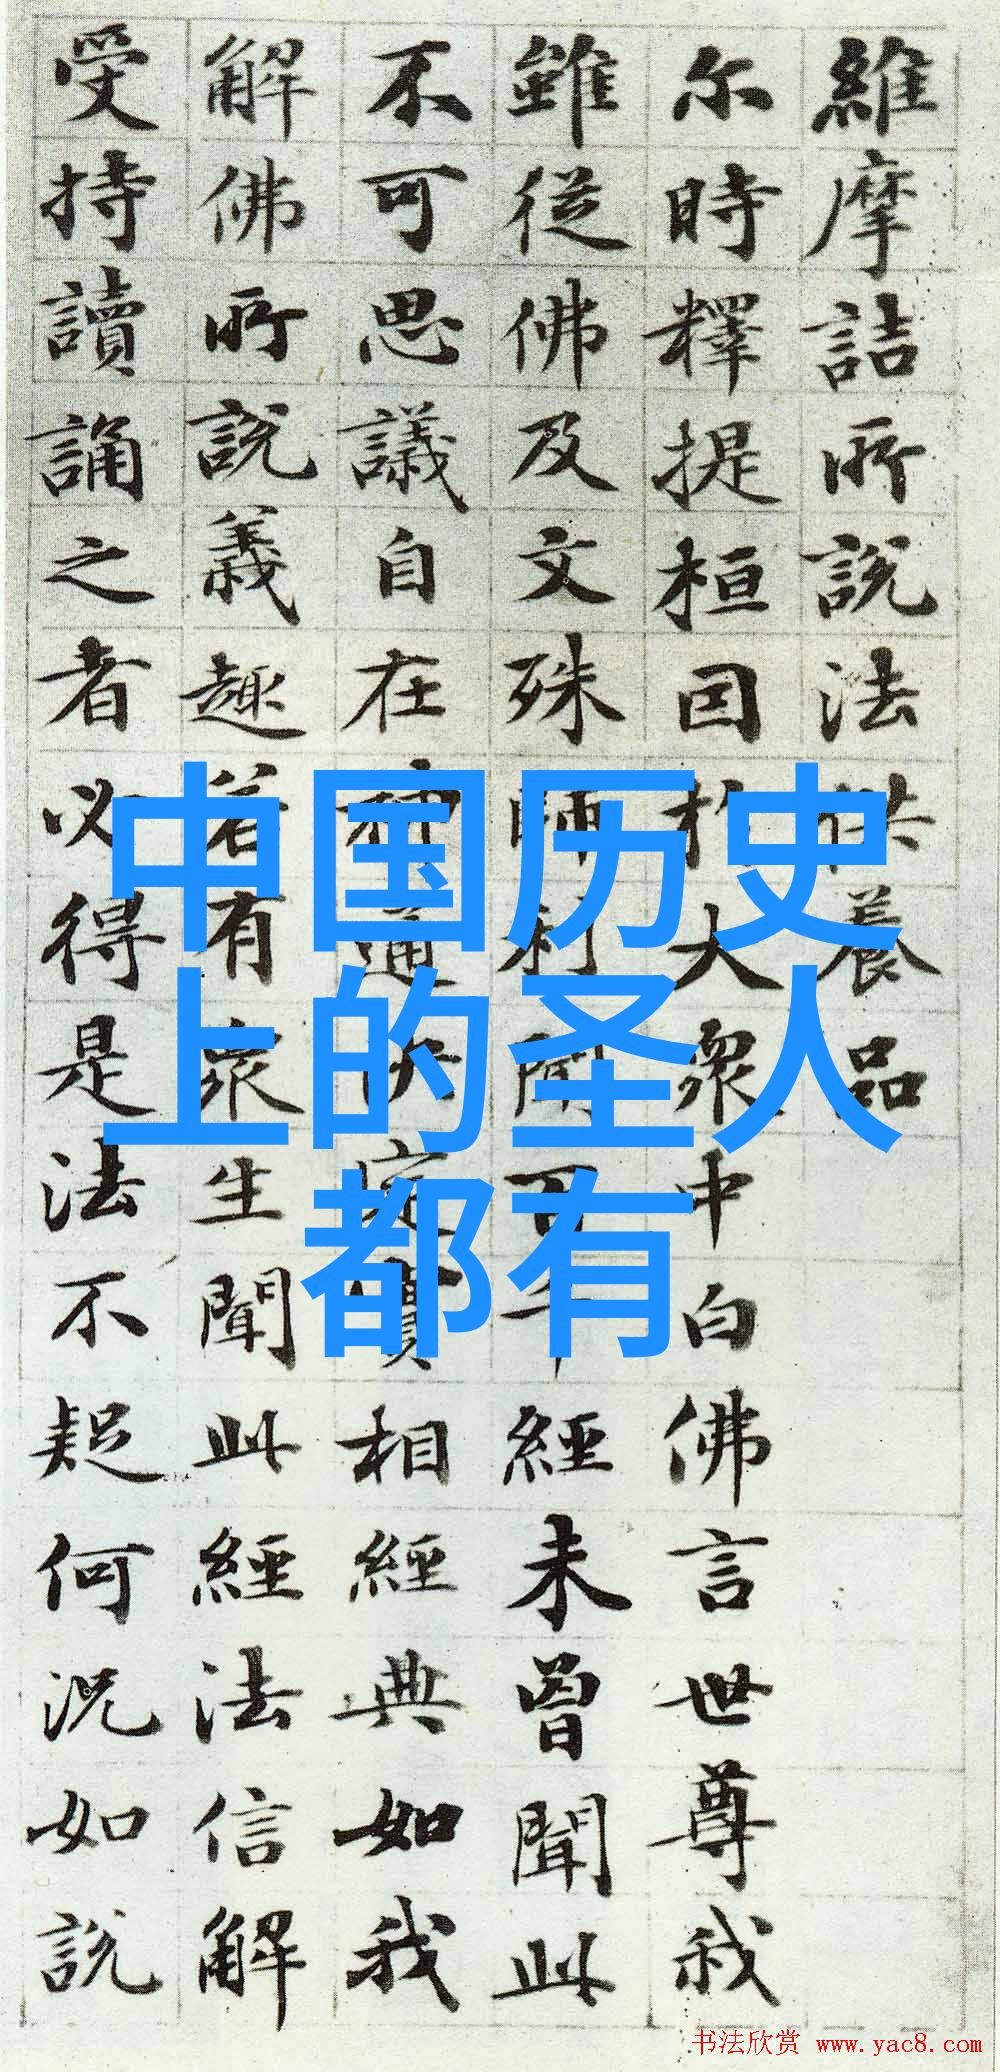 維摩詰所說法供養品
尒時釋提桓因於大眾中白佛言世尊我
雖從佛及文殊師利聞百千經未曾聞此
不可思議自在神通決定實相經典如我
解佛所說義趣若有眾生聞此經法信解
受持讀誦之者必得是法不疑何況如說
中国历史
上的圣人
都有
书法欣赏 www.yac8.com